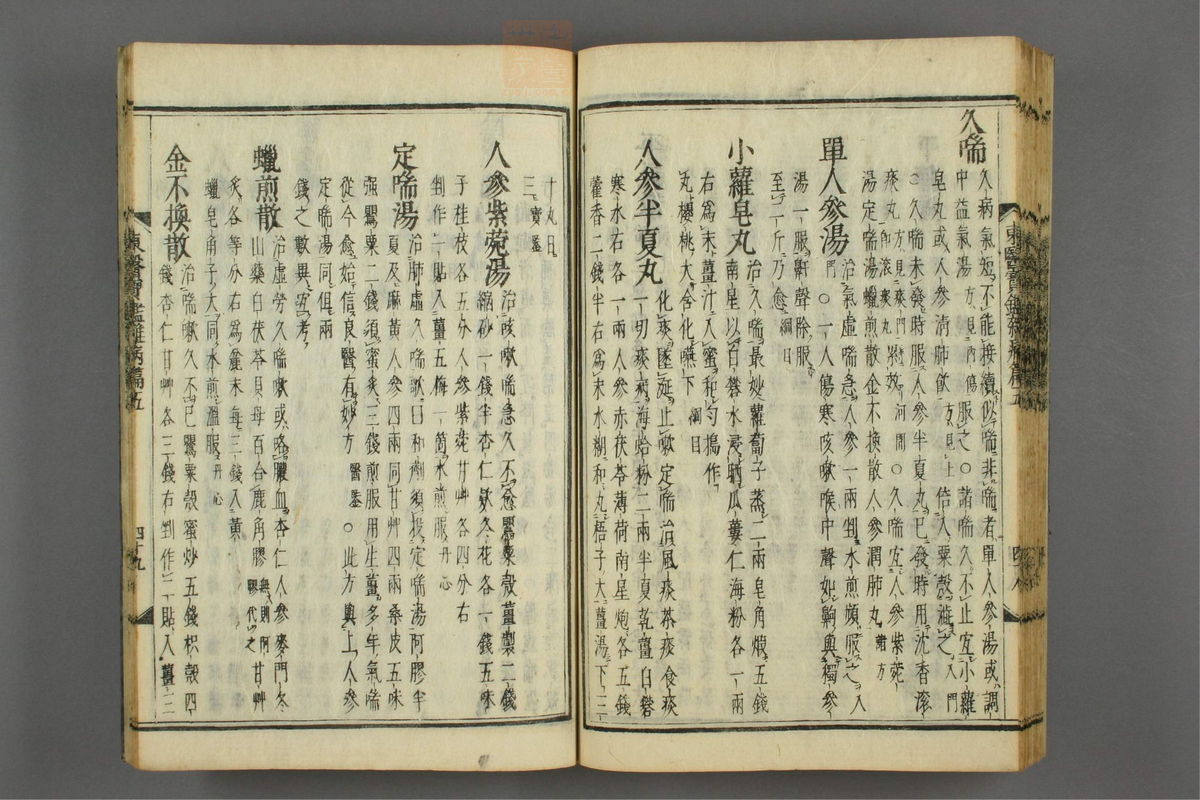 久喘
久病氣短不能接續似喘非喘者單人參湯或調
中益氣湯方見內傷服之○諸喘久不止宜小蘿
皂丸或人參清肺飮方見上倍入粟殼澁之入門
○久喘未發時服人參半夏丸已發時用沈香滾
痰丸方見痰門卽滾痰丸累效河間○久喘宜人參紫菀
湯定喘湯蠟煎散金不換散人參潤肺丸諸方
單人參湯
治氣虛喘急人參一兩剉水煎頻服之入
門○一人傷寒咳嗽喉中聲如鼾與獨參
湯一服鼾聲除服
至二斤乃愈綱目
小蘿皂丸
治久喘最妙蘿葍子蒸二兩皂角煆五錢
南星以白礬水浸晒瓜蔞仁海粉各一兩
右爲末薑汁入蜜和勻搗作
丸櫻桃大含化嚥下綱目
人參半夏丸
化痰墜涎止嗽定喘治風痰茶痰食痰
一切痰病海蛤粉二兩半夏乾薑白礬
寒水石各一兩人參赤茯苓薄荷南星炮各五錢
藿香二錢半右爲末水糊和丸梧子大薑湯下三
東醫寶鑑雜病篇五
十丸日
三寶鑑
人參紫菀湯
治咳嗽喘急久不愈罌粟殼薑製二錢
縮砂一錢半杏仁欵冬花各一錢五味
子桂枝各五分人參紫菀甘艸各四分右
剉作一貼入薑五梅一箇水煎服丹心
定喘湯
治肺虛久喘歌曰和劑須投定喘湯阿膠半
夏及麻黃人參四兩同甘艸四兩桑皮五味
强罌粟二錢須蜜炙三錢煎服用生薑多年氣喘
從今愈始信良醫有妙方醫鑑○此方與上人參
定喘湯同但兩
錢之數異宜考
蠟煎散
治虛勞久喘嗽或咯膿血杏仁人參麥門冬
山藥白茯苓貝母百合鹿角膠無則阿膠代之甘艸
炙各等分右爲麤末每三錢入黃
蠟皂角子大同水煎溫服丹心
金不換散
治喘嗽久不已罌粟殼蜜炒五錢枳殼四
錢杏仁甘艸各三錢右剉作二貼入薑三
東醫寶鑑雜病篇五
四十九